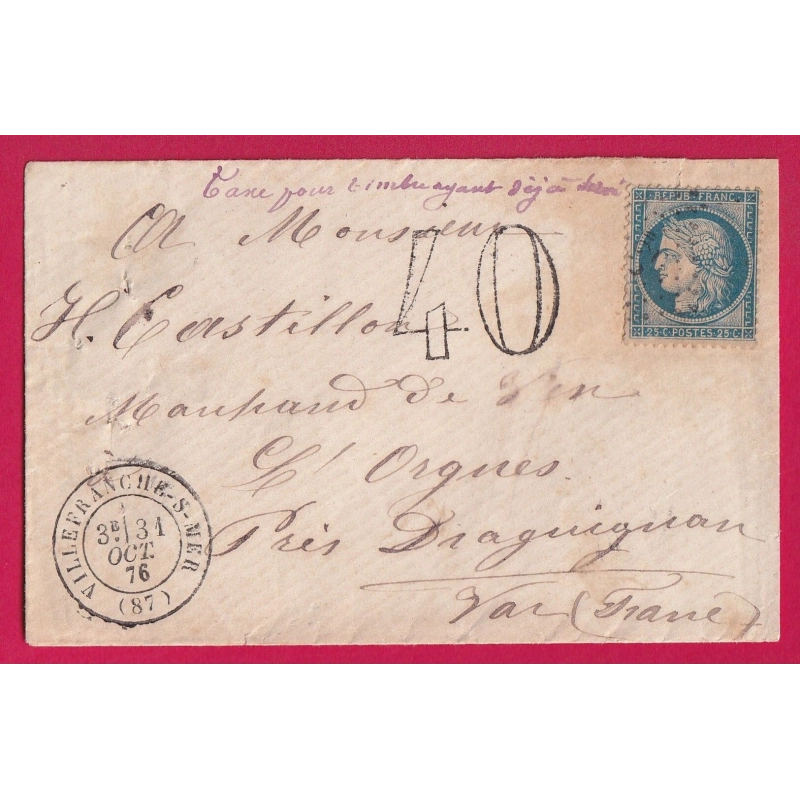 Taxe pour timbre ayant déjà servi
REPUB · FRANC
25 · C · POSTES · 25 · C
40
A Monsieur
H. Castillon
Marchand de Vin
L'Orgues
Près Draguignan
Var (France)
VILLEFRANCHE-S-MER
3E 31
OCT.
76
(87)